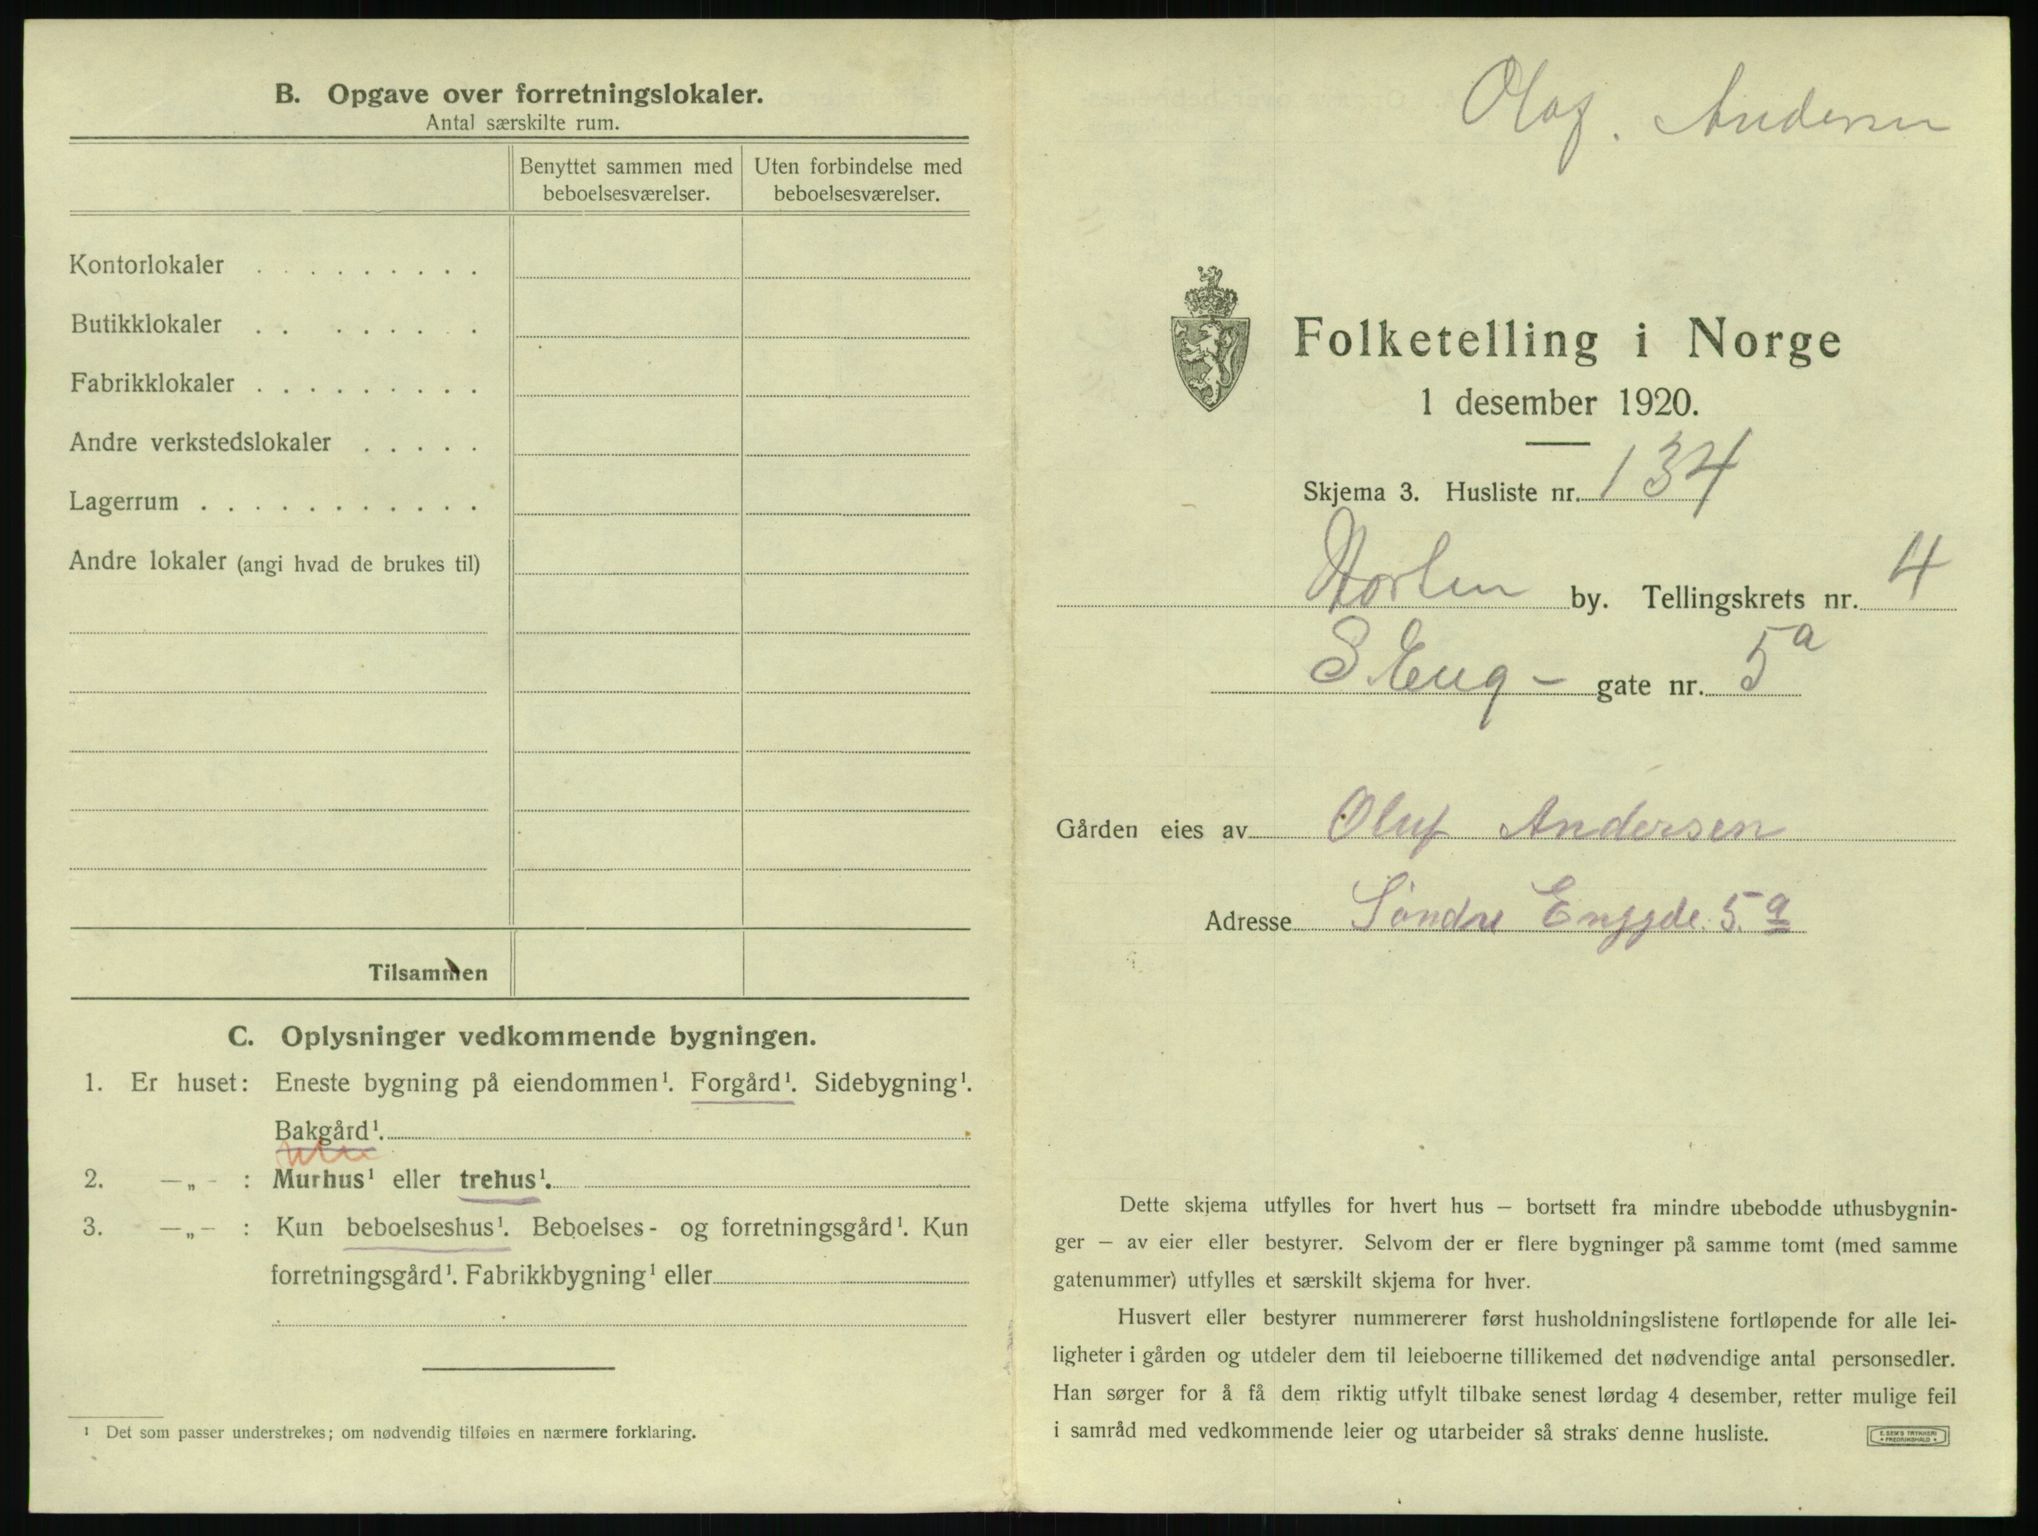 B. Opgave over forretningslokaler.
Antal særskilte rum.
Benyttet sammen med beboelsesværelser.
Uten forbindelse med beboelsesværelser.
Kontorlokaler . . . . . . . . .
Butikklokaler . . . . . . . .
Fabrikklokaler . . . . . . . . .
Andre verkstedslokaler . . . . .
Lagerrum . . . . . . . . . . .
Andre lokaler (angi hvad de brukes til)
Tilsammen
C. Oplysninger vedkommende bygningen.
1. Er huset: Eneste bygning på eiendommen¹. Forgård¹. Sidebygning¹.
Bakgård¹.
2. —„— : Murhus¹ eller trehus¹.
3. —„— : Kun beboelseshus¹. Beboelses- og forretningsgård¹. Kun
forretningsgård¹. Fabrikkbygning¹ eller
¹ Det som passer understrekes; om nødvendig tilføies en nærmere forklaring.
Olaf. Andersen
Folketelling i Norge
1 desember 1920.
Skjema 3. Husliste nr. 134
Horten by. Tellingskrets nr. 4
S. Eng – gate nr. 5a
Gården eies av Oluf Andersen
Adresse Søndre Enggde. 5.a
Dette skjema utfylles for hvert hus — bortsett fra mindre ubebodde uthusbygnin-
ger — av eier eller bestyrer. Selvom der er flere bygninger på samme tomt (med samme
gatenummer) utfylles et særskilt skjema for hver.
Husvert eller bestyrer nummererer først husholdningslistene fortløpende for alle lei-
ligheter i gården og utdeler dem til leieboerne tillikemed det nødvendige antal personsedler.
Han sørger for å få dem riktig utfylt tilbake senest lørdag 4 desember, retter mulige feil
i samråd med vedkommende leier og utarbeider så straks denne husliste.
E. SEM'S TRYKKERI
FREDRIKSHALD